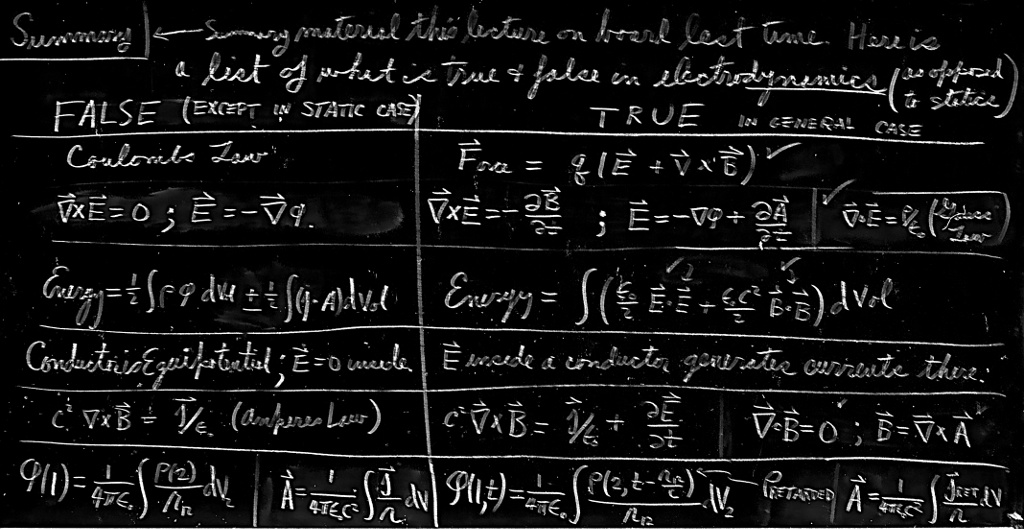 Summary ← Summary material this lecture on board last time. Here is
a list of what is true & false in electrodynamics (as opposed to statics)
FALSE (EXCEPT IN STATIC CASE) TRUE IN GENERAL CASE
Coulombs Law Force = q(E⃗ + v⃗ × B⃗) ✓
∇⃗×E⃗ = 0 ; E⃗ = -∇⃗φ. ∇⃗×E⃗ = -∂B⃗/∂t ; E⃗ = -∇φ + ∂A⃗/∂t ✓ ∇⃗·E⃗ = ρ/ε₀ (Gauss Law)
Energy = ½∫ρφ dVol ± ½∫(j·A)dVol Energy = ∫(ε₀/2 E⃗·E⃗ + ε₀c²/2 B⃗·B⃗) dVol
Conductor is Equipotential ; E⃗ = 0 inside. E⃗ inside a conductor generates currents there.
c² ∇×B⃗ = j⃗/ε₀ (Amperes Law) c² ∇⃗×B⃗ = j⃗/ε₀ + ∂E⃗/∂t ∇⃗·B⃗ = 0 ; B⃗ = ∇⃗×A⃗
φ(1) = 1/4πε₀ ∫ ρ(2)/r₁₂ dV₂ A⃗ = 1/4πε₀c² ∫ j⃗/r dV φ(1,t) = 1/4πε₀ ∫ ρ(2, t - r₁₂/c)/r₁₂ dV₂ ← RETARDED A⃗ = 1/4πε₀c² ∫ j⃗RET/r dV